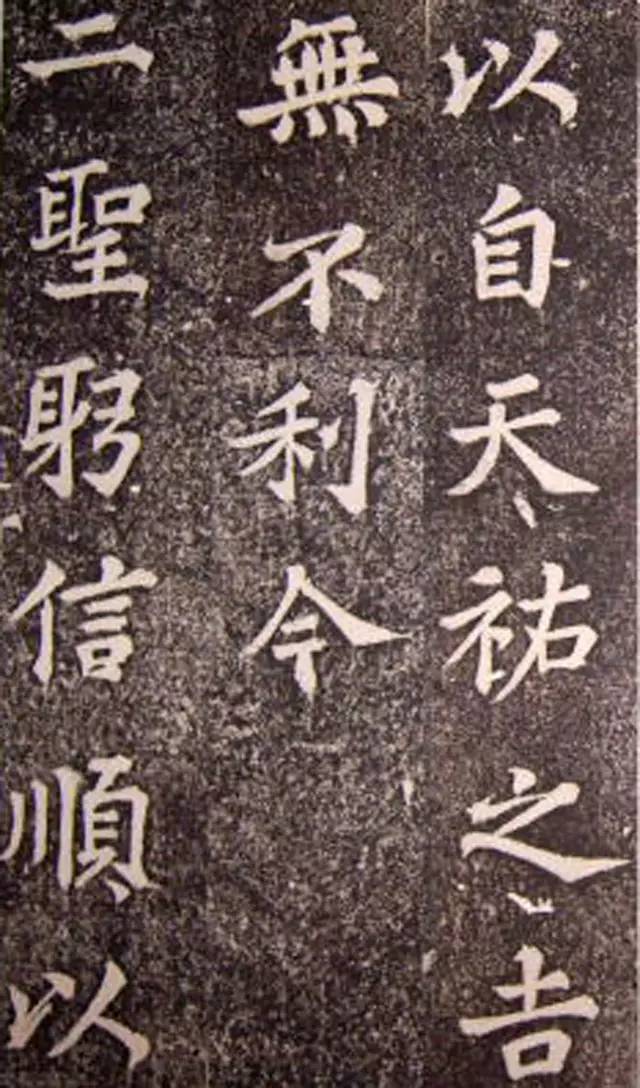 以自天祐之吉
無不利今
二聖躬信順以